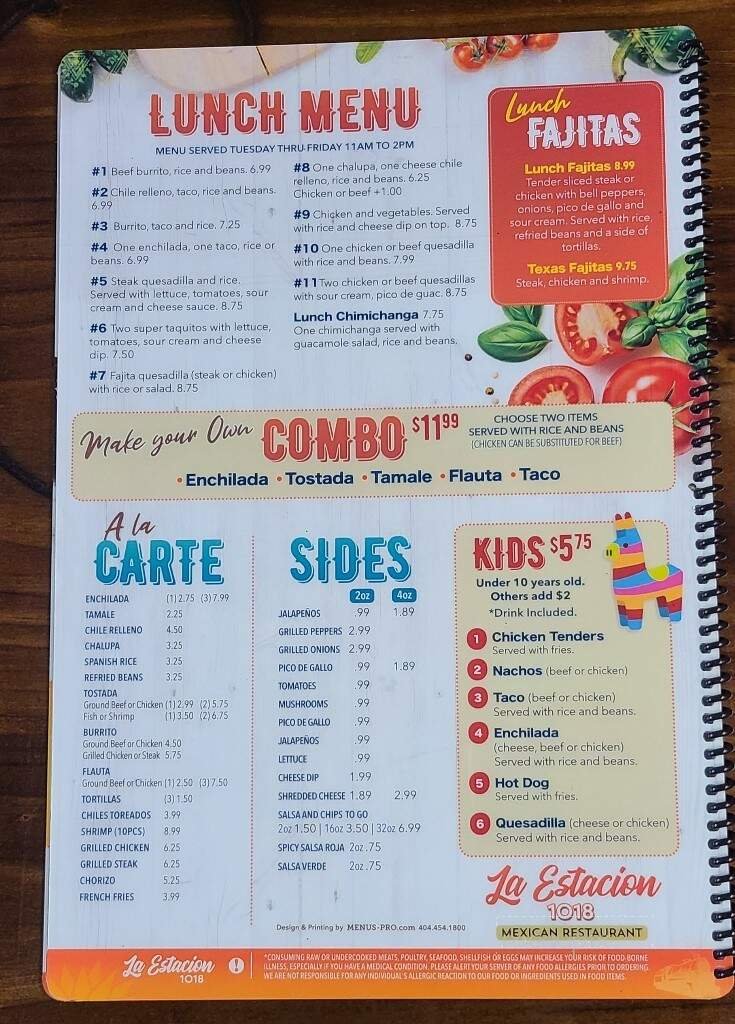 LUNCH MENU
MENU SERVED TUESDAY THRU FRIDAY 11AM TO 2PM
#1 Beef burrito, rice and beans. 6.99
#2 Chile relleno, taco, rice and beans.
6.99
#3 Burrito, taco and rice. 7.25
#4 One enchilada, one taco, rice or
beans. 6.99
#5 Steak quesadilla and rice.
Served with lettuce, tomatoes, sour
cream and cheese sauce. 8.75
#6 Two super taquitos with lettuce,
tomatoes, sour cream and cheese
dip. 7.50
#7 Fajita quesadilla (steak or chicken)
with rice or salad. 8.75
#8 One chalupa, one cheese chile
relleno, rice and beans. 6.25
Chicken or beef +1.00
#9 Chicken and vegetables. Served
with rice and cheese dip on top. 8.75
#10 One chicken or beef quesadilla
with rice and beans. 7.99
#11 Two chicken or beef quesadillas
with sour cream, pico de guac. 8.75
Lunch Chimichanga 7.75
One chimichanga served with
guacamole salad, rice and beans.
Lunch
FAJITAS
Lunch Fajitas 8.99
Tender sliced steak or
chicken with bell peppers,
onions, pico de gallo and
sour cream. Served with rice,
refried beans and a side of
tortillas.
Texas Fajitas 9.75
Steak, chicken and shrimp.
Make your Own COMBO $11.99
CHOOSE TWO ITEMS
SERVED WITH RICE AND BEANS
(CHICKEN CAN BE SUBSTITUTED FOR BEEF)
• Enchilada • Tostada • Tamale • Flauta • Taco
A la
CARTE
ENCHILADA (1) 2.75 (3) 7.99
TAMALE 2.25
CHILE RELLENO 4.50
CHALUPA 3.25
SPANISH RICE 3.25
REFRIED BEANS 3.25
TOSTADA
Ground Beef or Chicken (1) 2.99 (2) 5.75
Fish or Shrimp (1) 3.50 (2) 6.75
BURRITO
Ground Beef or Chicken 4.50
Grilled Chicken or Steak 5.75
FLAUTA
Ground Beef or Chicken (1) 2.50 (3) 7.50
TORTILLAS (3) 1.50
CHILES TOREADOS 3.99
SHRIMP (10PCS) 8.99
GRILLED CHICKEN 6.25
GRILLED STEAK 6.25
CHORIZO 5.25
FRENCH FRIES 3.99
SIDES
2oz 4oz
JALAPEÑOS .99 1.89
GRILLED PEPPERS 2.99
GRILLED ONIONS 2.99
PICO DE GALLO .99 1.89
TOMATOES .99
MUSHROOMS .99
PICO DE GALLO .99
JALAPEÑOS .99
LETTUCE .99
CHEESE DIP 1.99
SHREDDED CHEESE 1.89 2.99
SALSA AND CHIPS TO GO
2oz 1.50 | 16oz 3.50 | 32oz 6.99
SPICY SALSA ROJA 2oz .75
SALSA VERDE 2oz .75
KIDS $5.75
Under 10 years old.
Others add $2
*Drink Included.
1 Chicken Tenders
Served with fries.
2 Nachos (beef or chicken)
3 Taco (beef or chicken)
Served with rice and beans.
4 Enchilada
(cheese, beef or chicken)
Served with rice and beans.
5 Hot Dog
Served with fries.
6 Quesadilla (cheese or chicken)
Served with rice and beans.
La Estacion
1018
MEXICAN RESTAURANT
Design & Printing by MENUS-PRO.com 404.454.1800
La Estacion
1018
*CONSUMING RAW OR UNDERCOOKED MEATS, POULTRY, SEAFOOD, SHELLFISH OR EGGS MAY INCREASE YOUR RISK OF FOOD-BORNE
ILLNESS, ESPECIALLY IF YOU HAVE A MEDICAL CONDITION. PLEASE ALERT YOUR SERVER OF ANY FOOD ALLERGIES PRIOR TO ORDERING.
WE ARE NOT RESPONSIBLE FOR ANY INDIVIDUAL'S ALLERGIC REACTION TO OUR FOOD OR INGREDIENTS USED IN FOOD ITEMS.